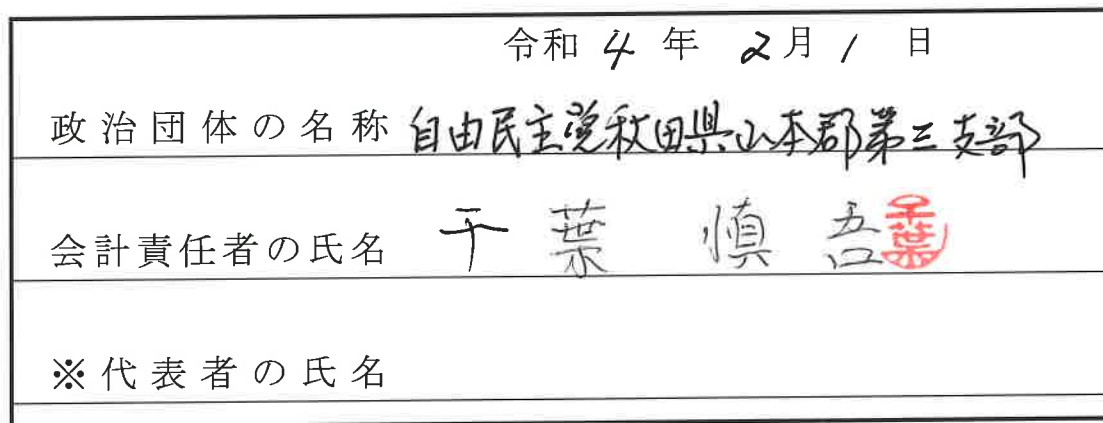 令和 4 年 2月 1 日
政治団体の名称 自由民主党秋田県山本郡第三支部
会計責任者の氏名 千葉 慎吾 千葉
※代表者の氏名